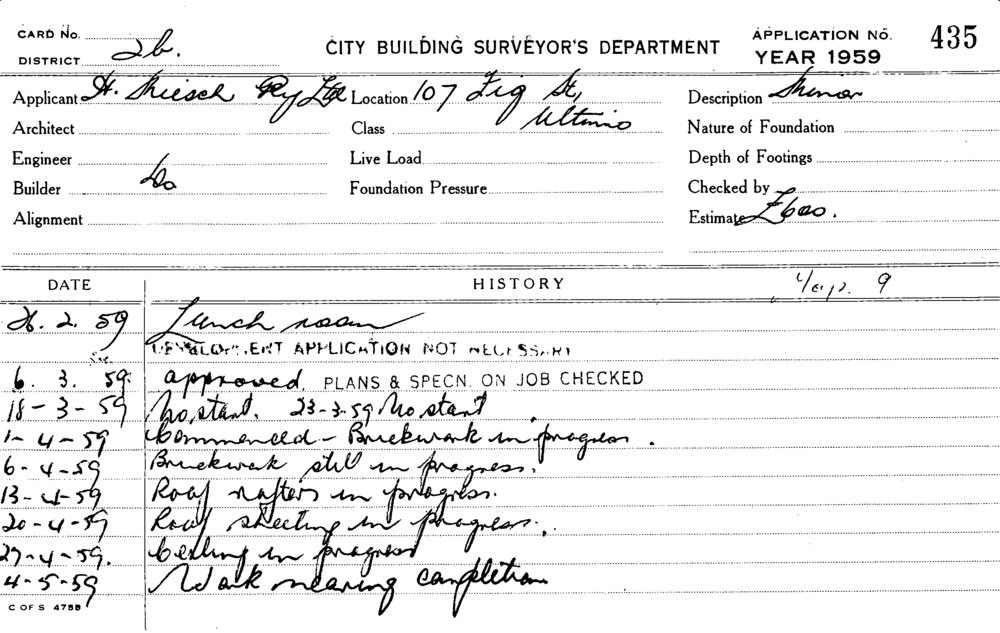 CARD No.
DISTRICT 2b.
CITY BUILDING SURVEYOR'S DEPARTMENT
APPLICATION No. 435
YEAR 1959
Applicant H. Pty Ltd Location 107 Fig St, Ultimo Description Minor
Architect Class Nature of Foundation
Engineer Live Load Depth of Footings
Builder Do Foundation Pressure Checked by
Alignment Estimate £600.
DATE HISTORY 9
26. 2. 59 Lunch room
DEVELOPMENT APPLICATION NOT NECESSARY
6. 3. 59. approved. PLANS & SPECN. ON JOB CHECKED
18-3-59 No start. 23-3-59 No start
1-4-59 Commenced - Brickwork in progress.
6-4-59 Brickwork still in progress.
13-4-59 Roof rafters in progress.
20-4-59 Roof sheeting in progress.
27-4-59. Ceiling in progress
4-5-59 Work nearing completion
C OF S 4758